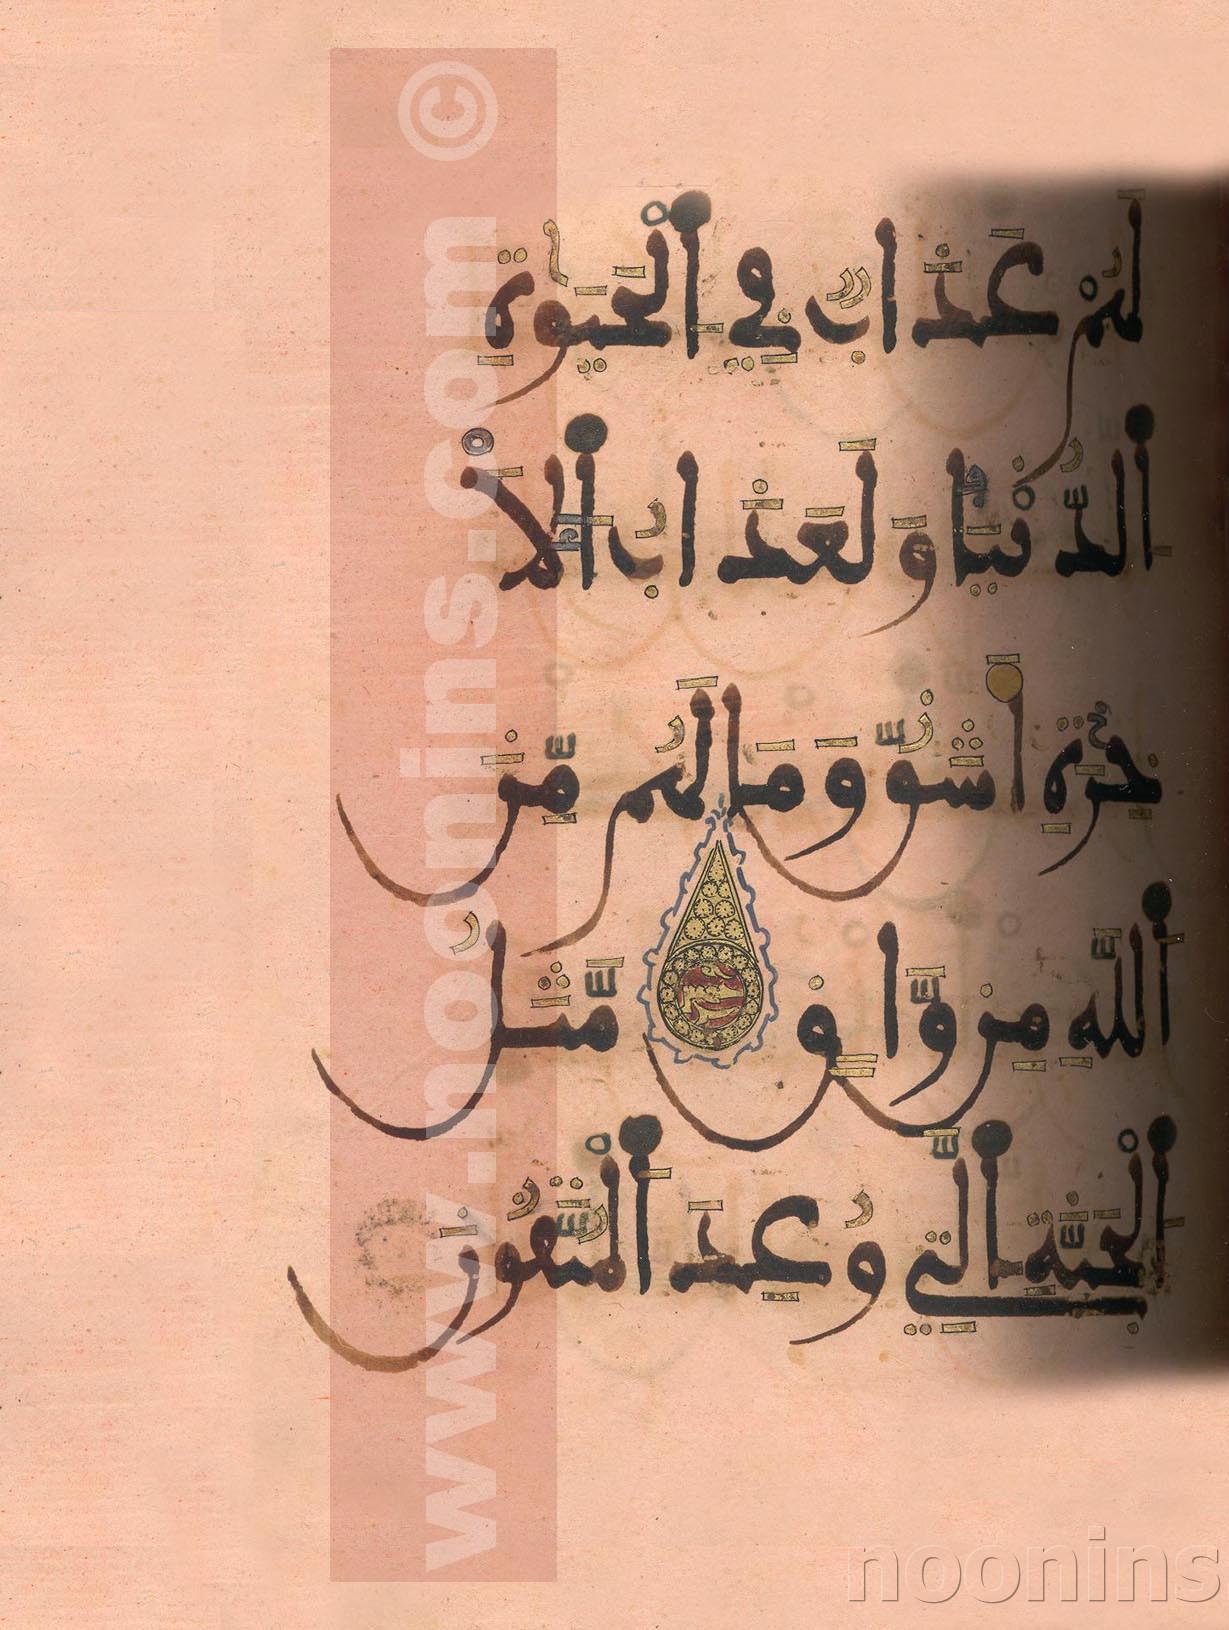 لَّهُمْ عَذَابٌ فِي ٱلْحَيَوٰةِ
ٱلدُّنْيَا وَلَعَذَابُ ٱلْأَ
خِرَةِ أَشَقُّ وَمَا لَهُم مِّنَ
ٱللَّهِ مِن وَاقٍ مَّثَلُ
ٱلْجَنَّةِ ٱلَّتِي وُعِدَ ٱلْمُتَّقُونَ
www.noonins.com ©
noonins